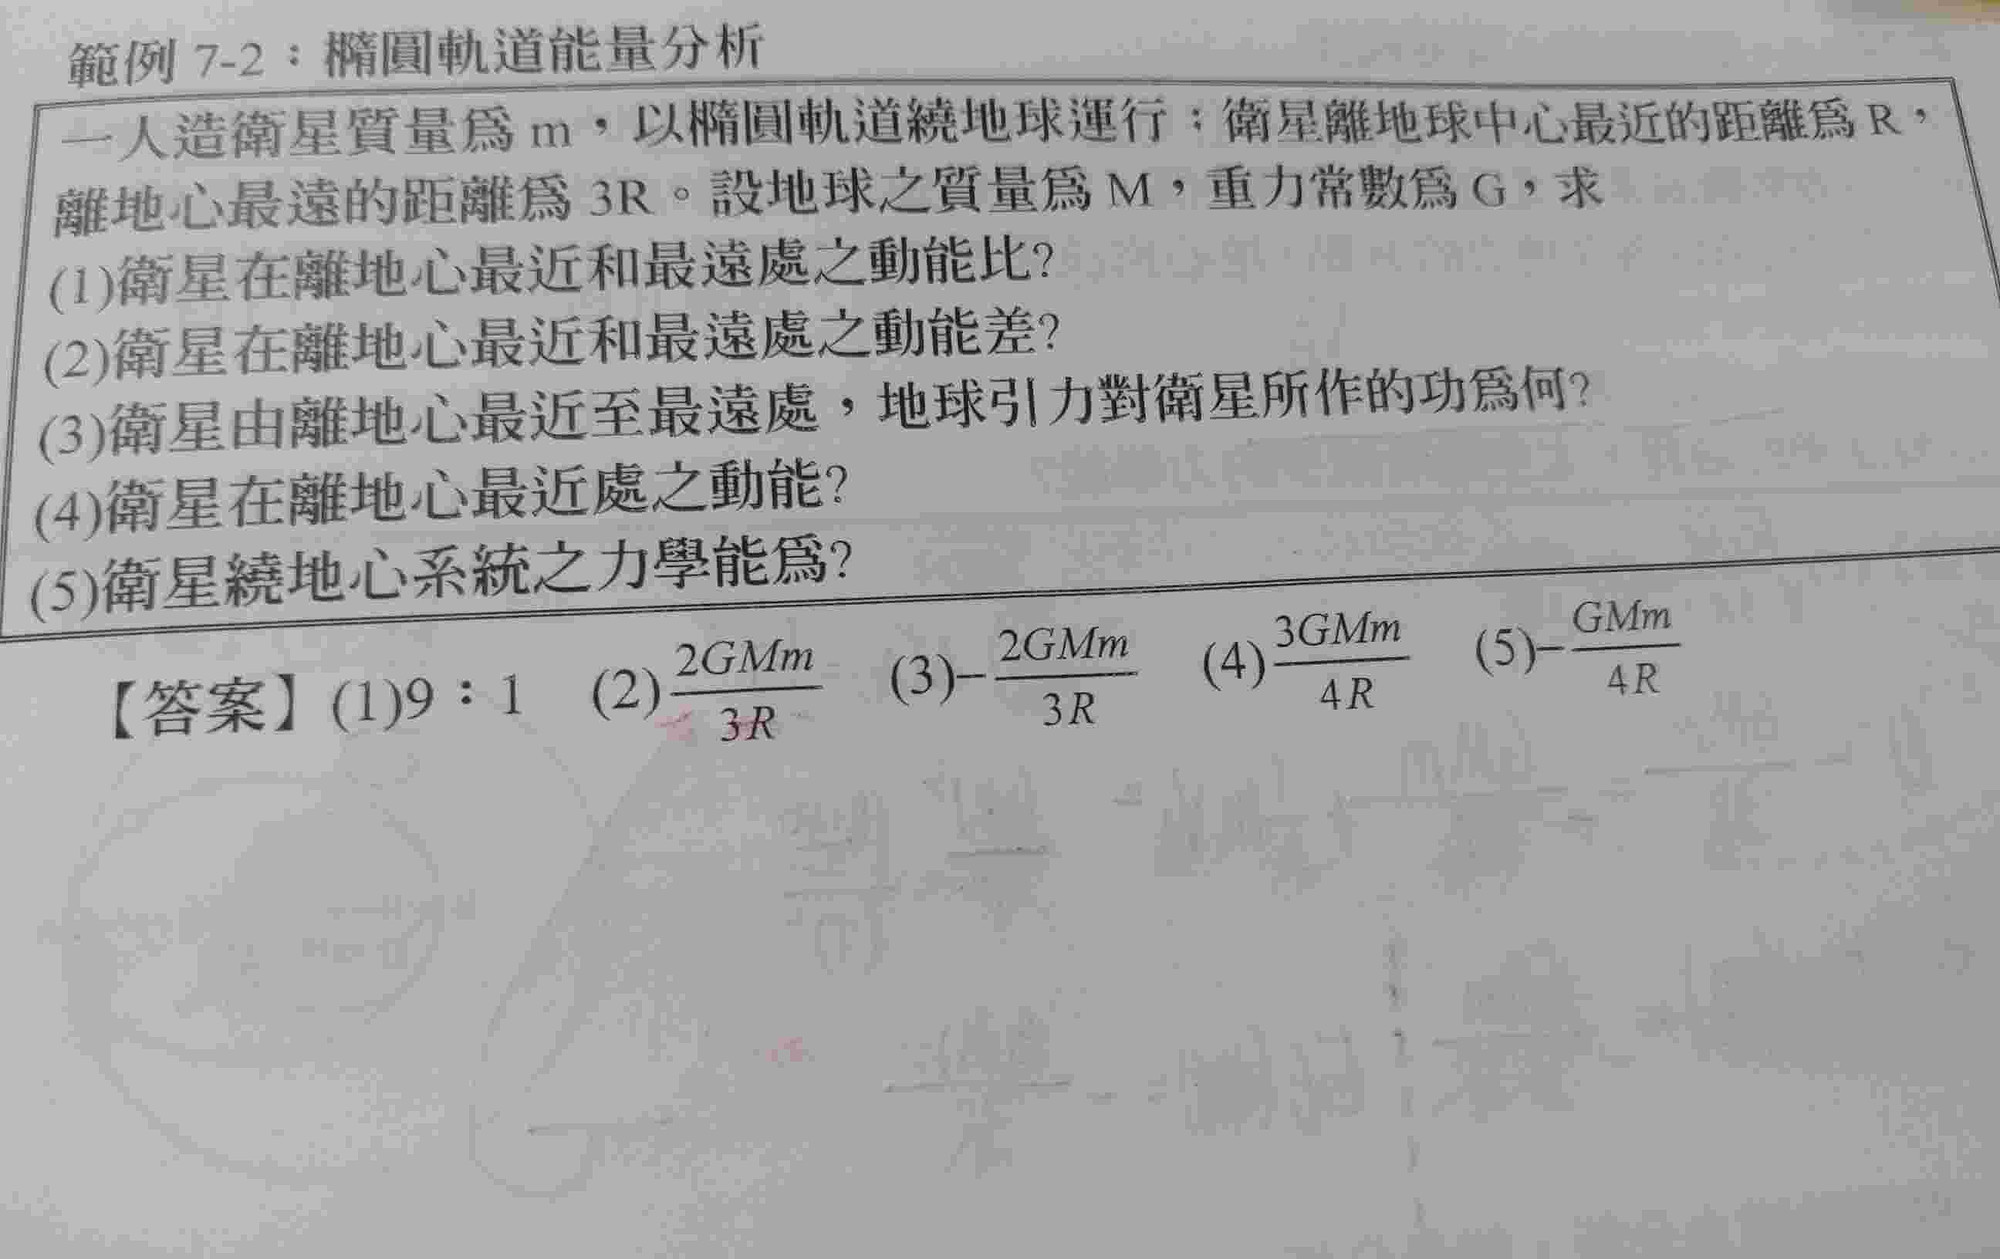 範例 7-2：橢圓軌道能量分析
一人造衛星質量爲 m，以橢圓軌道繞地球運行；衛星離地球中心最近的距離爲 R，
離地心最遠的距離爲 3R。設地球之質量爲 M，重力常數爲 G，求
(1)衛星在離地心最近和最遠處之動能比?
(2)衛星在離地心最近和最遠處之動能差?
(3)衛星由離地心最近至最遠處，地球引力對衛星所作的功爲何?
(4)衛星在離地心最近處之動能?
(5)衛星繞地心系統之力學能爲?
【答案】(1)9：1 (2)2GMm/3R (3)-2GMm/3R (4)3GMm/4R (5)-GMm/4R